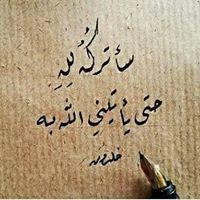 سأتركُهُ لِلهِ
حتى يأتيَني اللهُ به